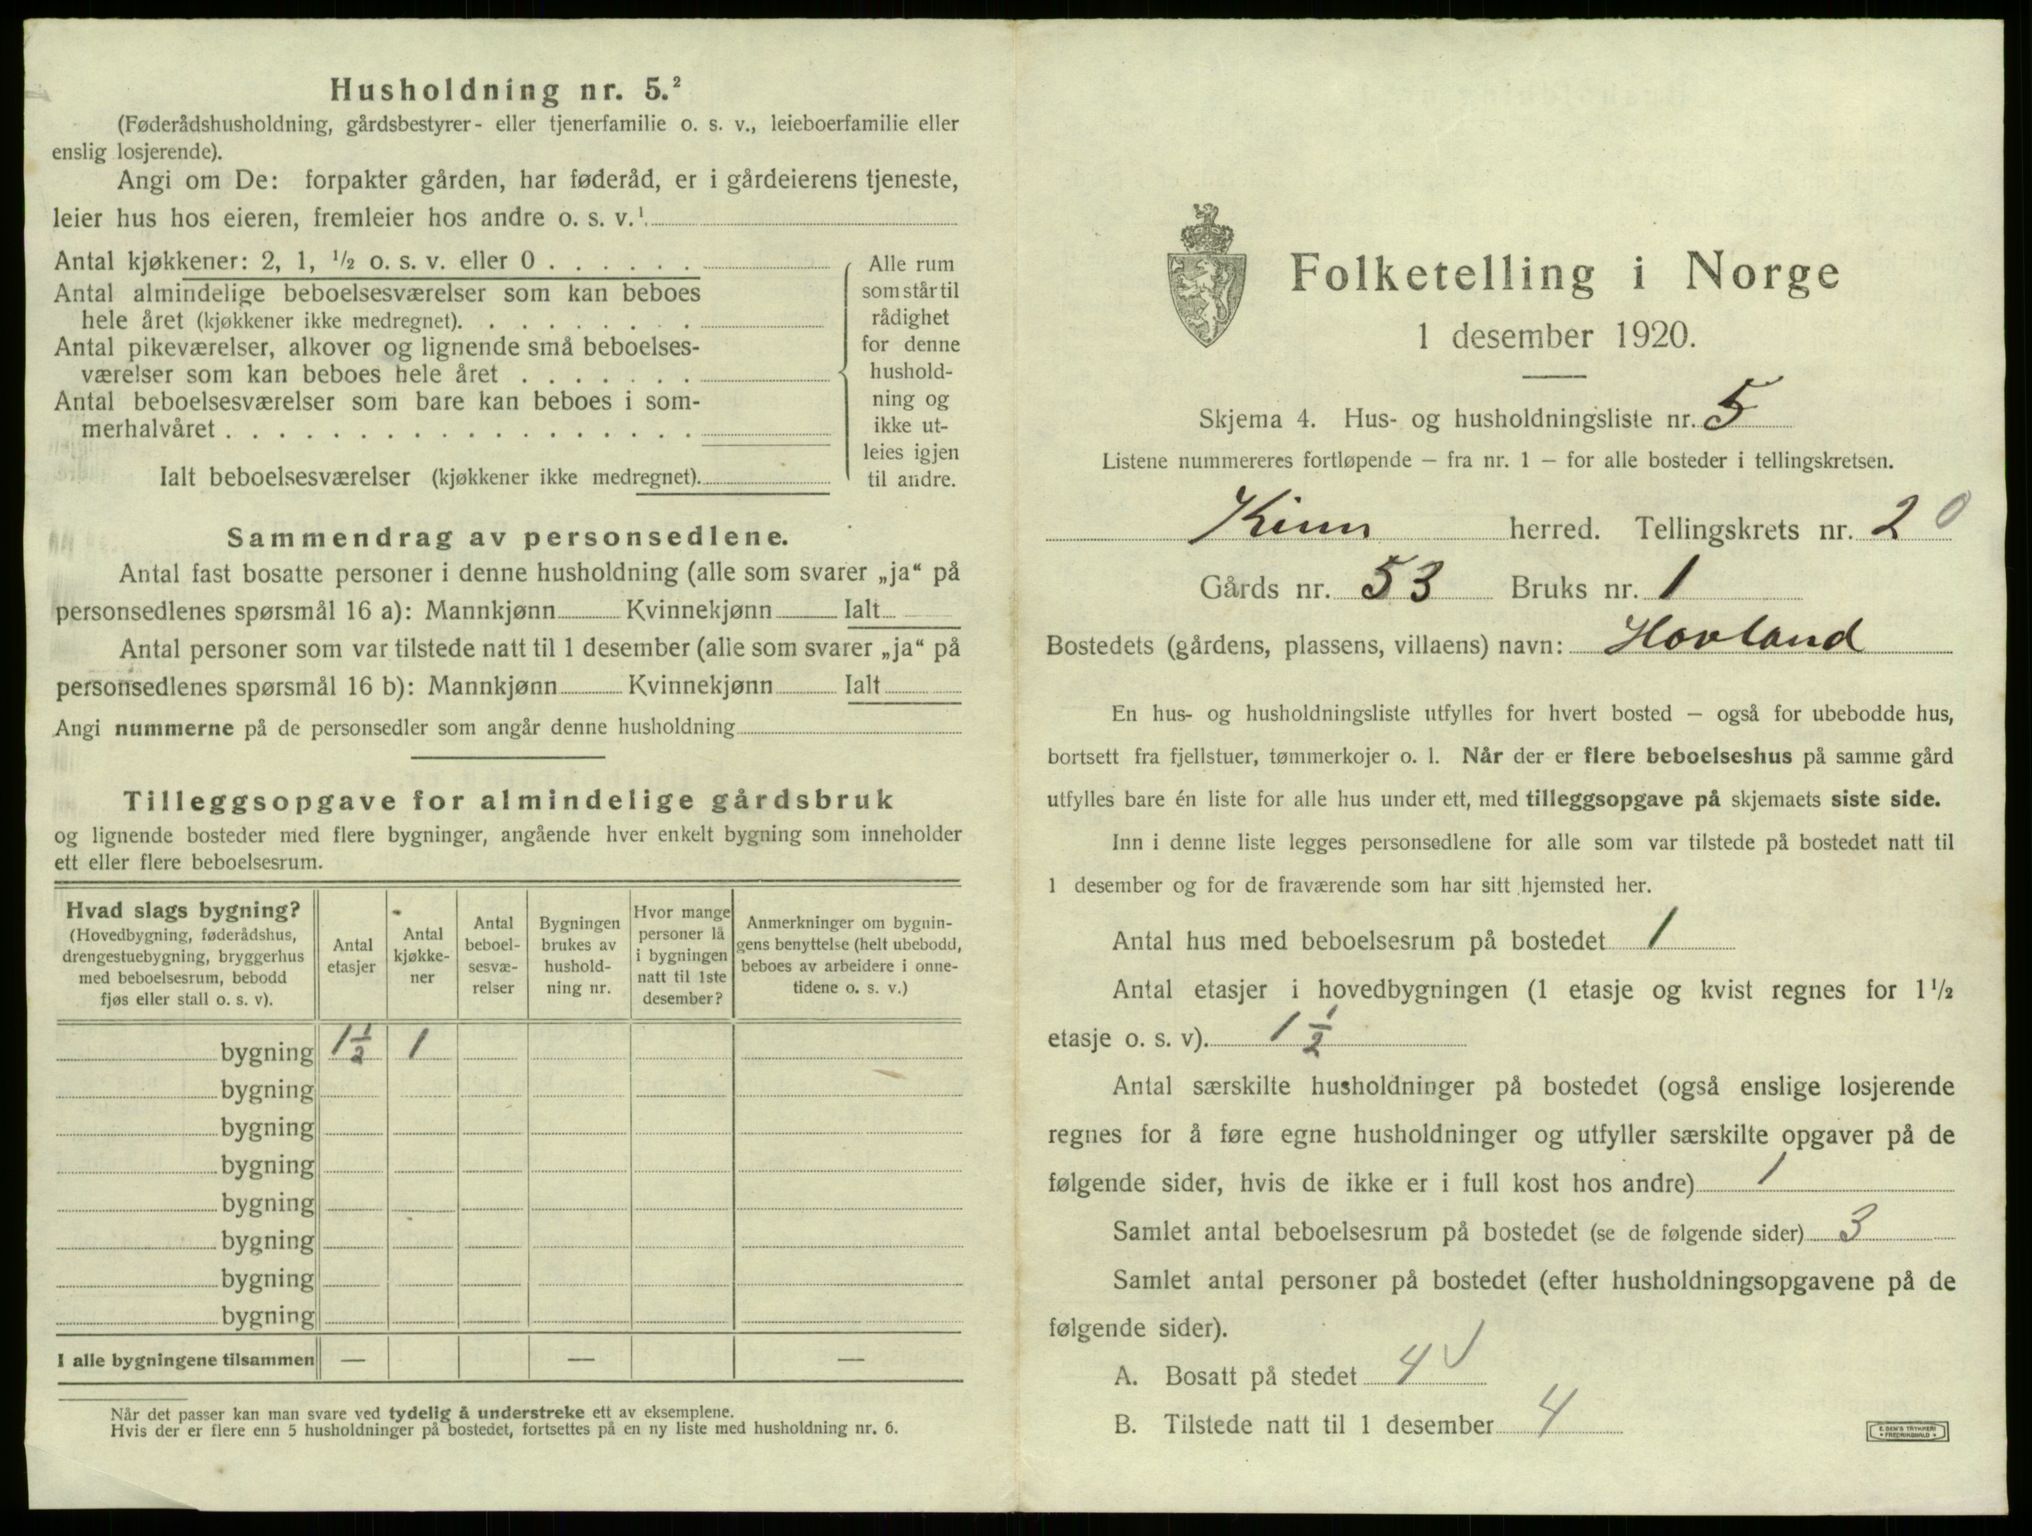 Husholdning nr. 5.²
(Føderådshusholdning, gårdsbestyrer- eller tjenerfamilie o. s. v., leieboerfamilie eller
enslig losjerende).
Angi om De: forpakter gården, har føderåd, er i gårdeierens tjeneste,
leier hus hos eieren, fremleier hos andre o. s. v.¹
Antal kjøkkener: 2, 1, ½ o. s. v. eller 0
Antal almindelige beboelsesværelser som kan beboes
hele året (kjøkkener ikke medregnet).
Antal pikeværelser, alkover og lignende små beboelses-
værelser som kan beboes hele året
Antal beboelsesværelser som bare kan beboes i som-
merhalvåret
Ialt beboelsesværelser (kjøkkener ikke medregnet).
Alle rum
som står til
rådighet
for denne
hushold-
ning og
ikke ut-
leies igjen
til andre.
Sammendrag av personsedlene.
Antal fast bosatte personer i denne husholdning (alle som svarer „ja“ på
personsedlenes spørsmål 16 a): Mannkjønn Kvinnekjønn Ialt
Antal personer som var tilstede natt til 1 desember (alle som svarer „ja“ på
personsedlenes spørsmål 16 b): Mannkjønn Kvinnekjønn Ialt
Angi nummerne på de personsedler som angår denne husholdning
Tilleggsopgave for almindelige gårdsbruk
og lignende bosteder med flere bygninger, angående hver enkelt bygning som inneholder
ett eller flere beboelsesrum.
Hvad slags bygning?
(Hovedbygning, føderådshus,
drengestuebygning, bryggerhus
med beboelsesrum, bebodd
fjøs eller stall o. s. v).
Antal
etasjer
Antal
kjøkke-
ner
Antal
beboel-
sesvæ-
relser
Bygningen
brukes av
hushold-
ning nr.
Hvor mange
personer lå
i bygningen
natt til 1ste
desember?
Anmerkninger om bygnin-
gens benyttelse (helt ubebodd,
beboes av arbeidere i onne-
tidene o. s. v.)
bygning 1½ 1
bygning
bygning
bygning
bygning
bygning
bygning
bygning
I alle bygningene tilsammen — — —
Når det passer kan man svare ved tydelig å understreke ett av eksemplene.
Hvis der er flere enn 5 husholdninger på bostedet, fortsettes på en ny liste med husholdning nr. 6.
Folketelling i Norge
1 desember 1920.
Skjema 4. Hus- og husholdningsliste nr. 5
Listene nummereres fortløpende – fra nr. 1 – for alle bosteder i tellingskretsen.
Kinn herred. Tellingskrets nr. 20
Gårds nr. 53 Bruks nr. 1
Bostedets (gårdens, plassens, villaens) navn: Hovland
En hus- og husholdningsliste utfylles for hvert bosted – også for ubebodde hus,
bortsett fra fjellstuer, tømmerkojer o. l. Når der er flere beboelseshus på samme gård
utfylles bare én liste for alle hus under ett, med tilleggsopgave på skjemaets siste side.
Inn i denne liste legges personsedlene for alle som var tilstede på bostedet natt til
1 desember og for de fraværende som har sitt hjemsted her.
Antal hus med beboelsesrum på bostedet 1
Antal etasjer i hovedbygningen (1 etasje og kvist regnes for 1½
etasje o. s. v). 1½
Antal særskilte husholdninger på bostedet (også enslige losjerende
regnes for å føre egne husholdninger og utfyller særskilte opgaver på de
følgende sider, hvis de ikke er i full kost hos andre) 1
Samlet antal beboelsesrum på bostedet (se de følgende sider) 3
Samlet antal personer på bostedet (efter husholdningsopgavene på de
følgende sider).
A. Bosatt på stedet 4 √
B. Tilstede natt til 1 desember 4
E. SEM'S TRYKKERI
FREDRIKSHALD